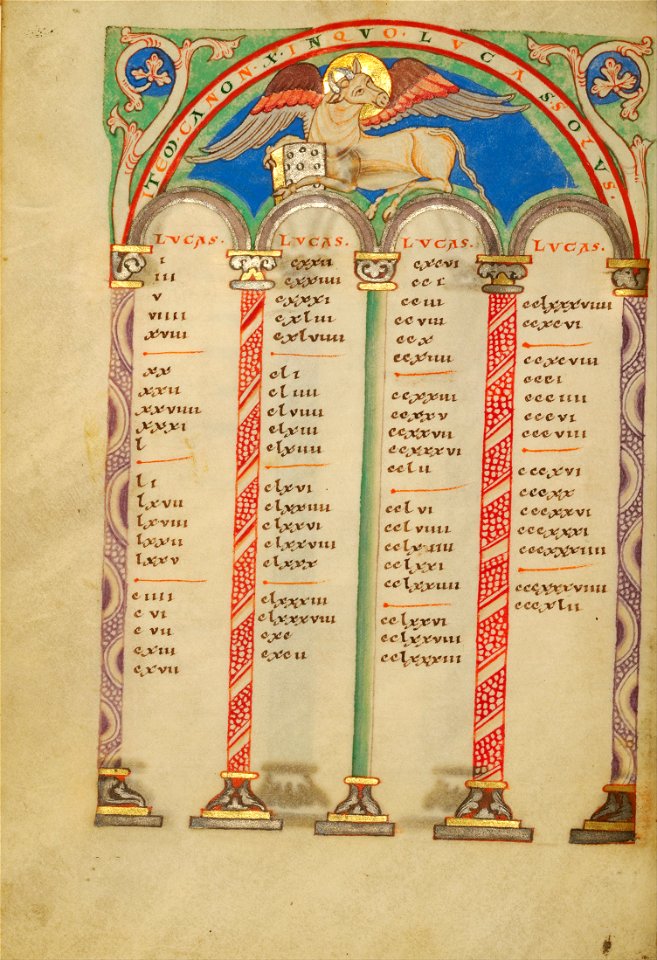 ITEM·CANON·X·IN QVO·LVCAS·SOLVS·
LVCAS·
i
iii
v
viiii
xviii
xx
xxii
xxviiii
xxxi
l
li
lxvii
lxviii
lxxii
lxxv
ciiii
cvi
cvii
cxiii
cxvii
LVCAS·
cxxii
cxxiiii
cxxxi
cxliii
cxlviiii
cli
cliiii
clviii
clxiii
clxiiii
clxvi
clxxiiii
clxxvi
clxxviii
clxxx
clxxxiii
clxxxviii
cxc
cxcii
LVCAS·
cxcvi
cci
cciii
ccviii
ccx
ccxiiii
ccxxiii
ccxxv
ccxxvii
ccxxxvi
cclii
cclvi
cclviiii
cclxxi
cclxxiiii
cclxxvi
cclxxviii
cclxxxiii
LVCAS·
cclxxxviiii
ccxcvi
ccxcviii
ccci
ccciiii
cccvi
cccviii
cccxvi
cccxx
cccxxvi
cccxxxi
cccxxxiiii
cccxxxviiii
cccxlii